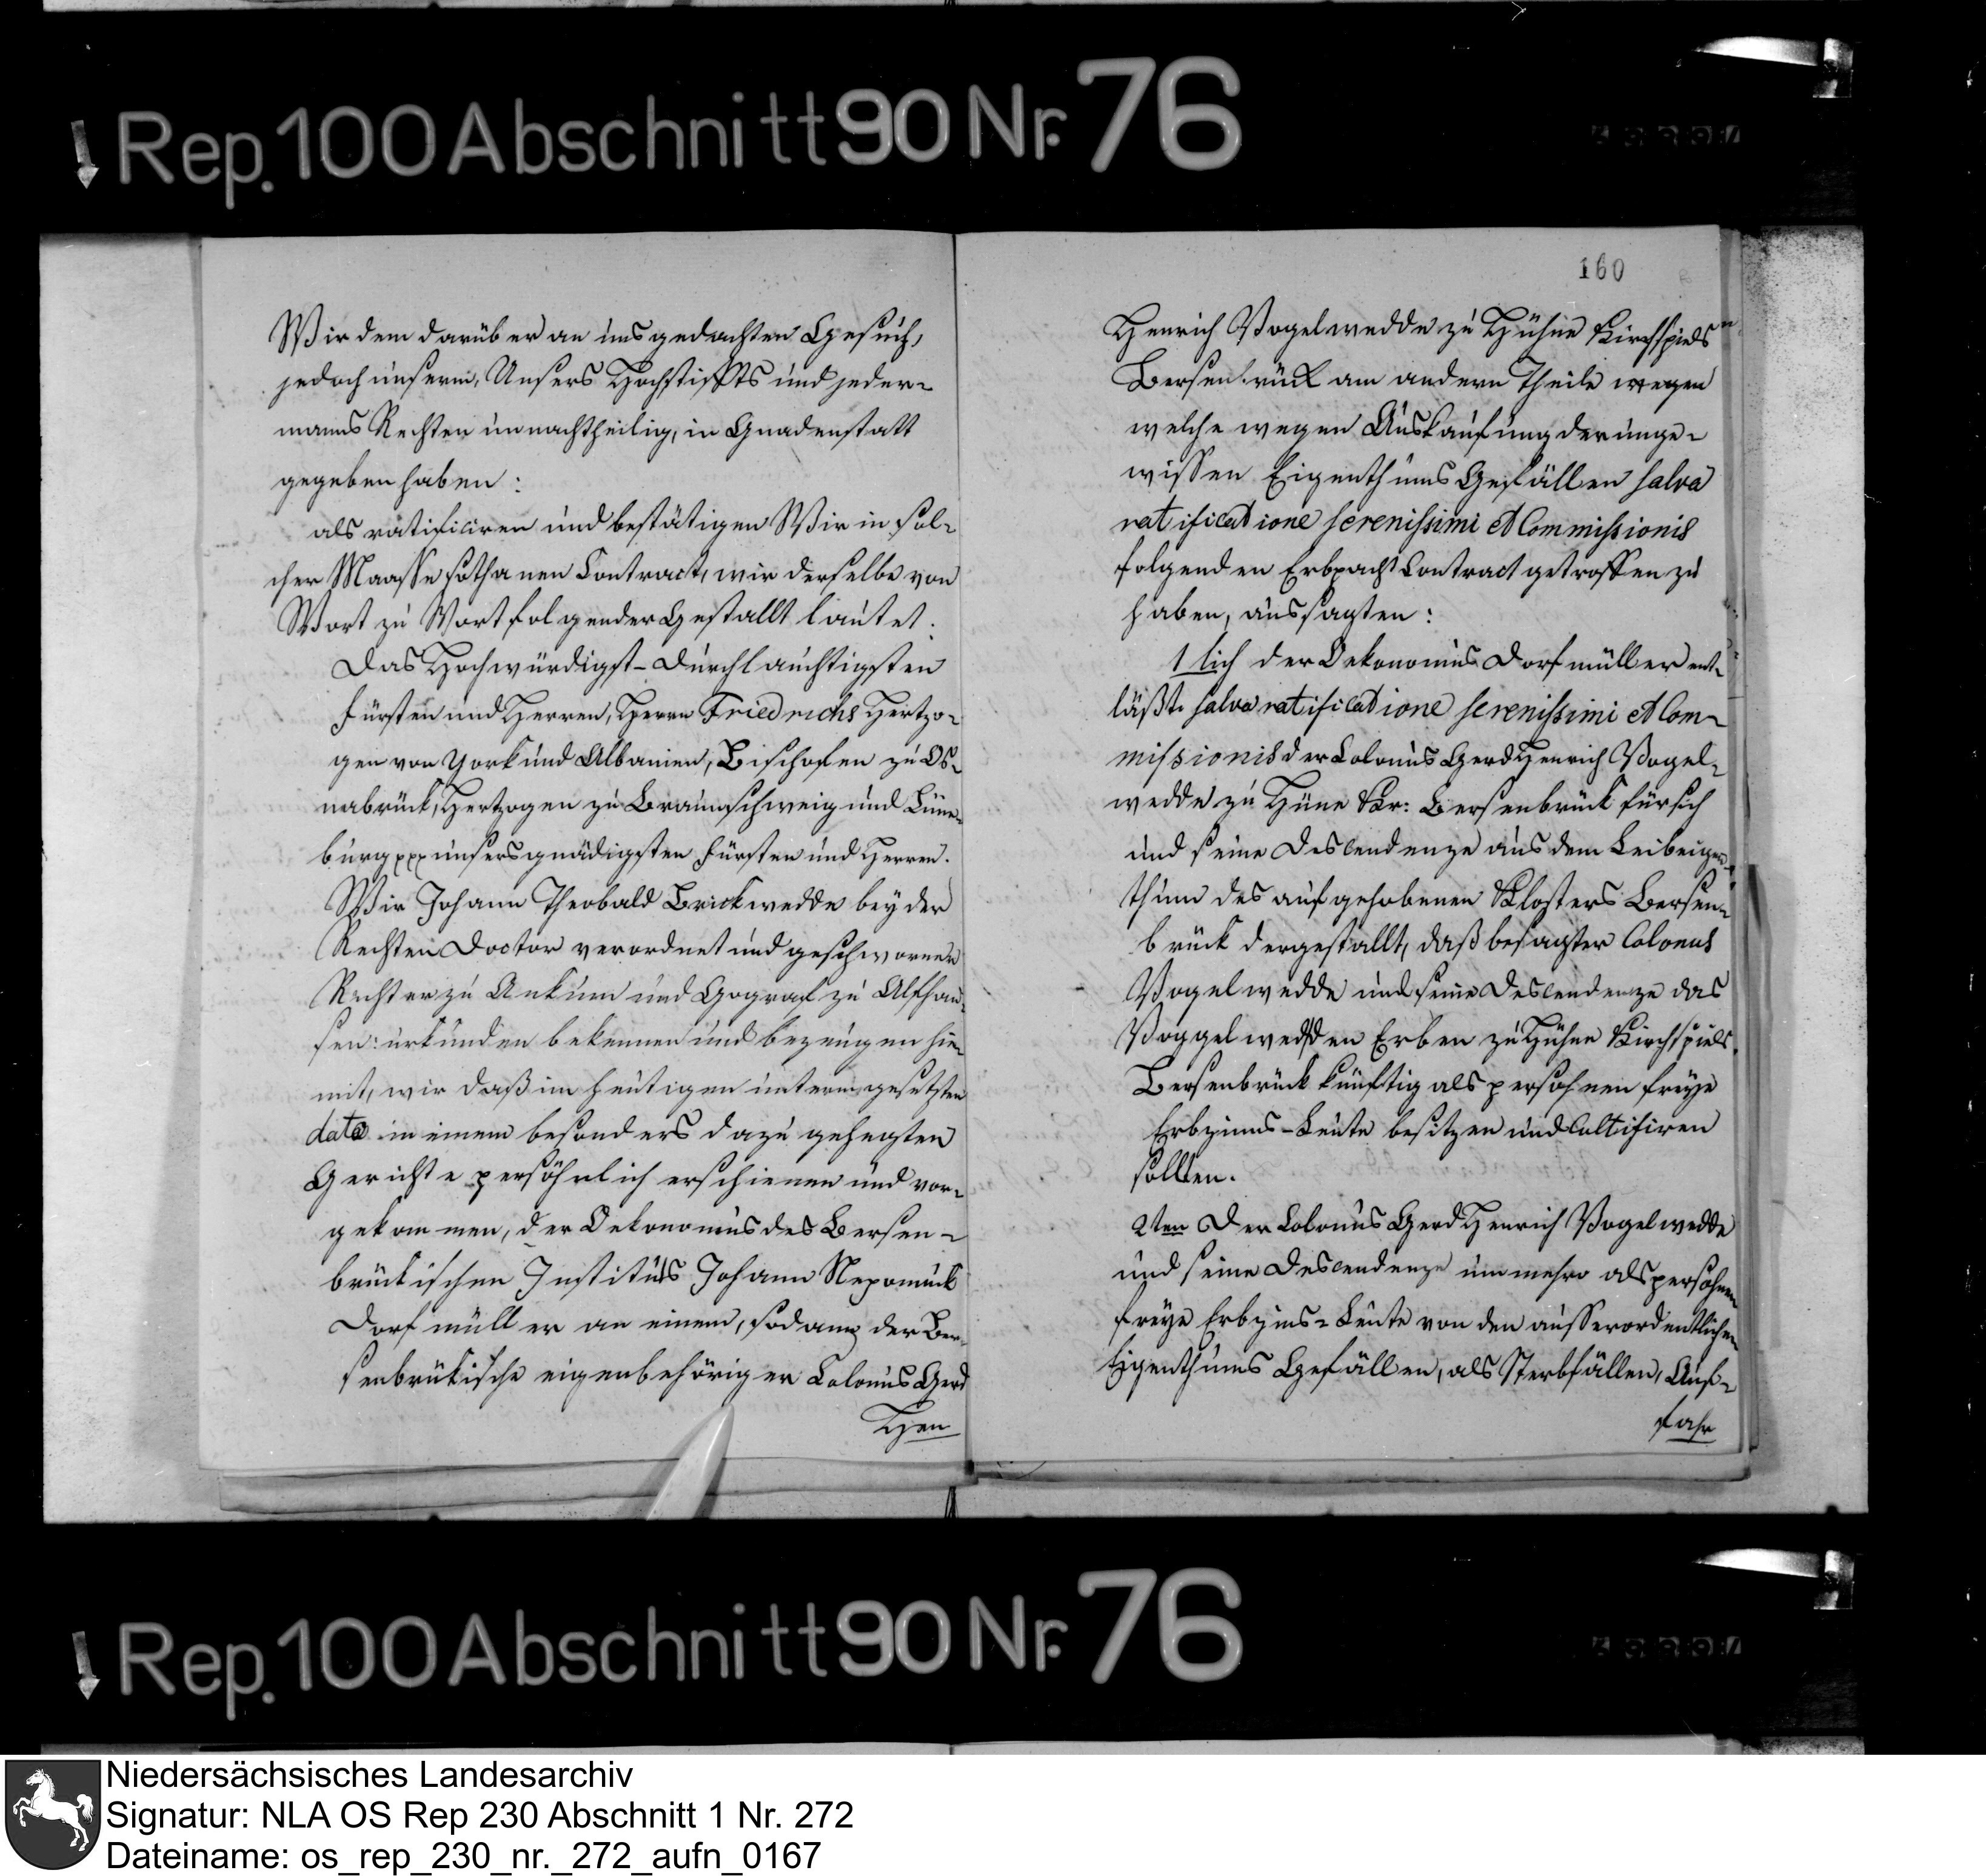 Rep. 100 Abschnitt 90 Nr. 76
Wir dem darüber an uns gedachten Gesuch,
jedoch unserm, Unsers Hochstiffts und jeder-
manns Rechten unnachtheilig, in Gnaden statt
gegeben haben:
als ratificiren und bestätigen Wir in sol-
cher Maasse sothanen Contract, wie derselbe von
Wort zu Wort folgender Gestallt lautet.
Das Hochwürdigst-Durchlauchtigsten
Fürsten und Herren, Herrn Friedrichs Hertzo-
gen von York und Albanien, Bischofen zu Os-
nabrück, Hertzogen zu Braunschweig und Lüne-
burg xxx unsers gnädigsten Fürsten und Herren.
Wir Johann Theobald Brickwedde beyder
Rechten Doctor verordnet und geschworner
Richter zu Ankum und Gograf zu Alfhau-
sen: urkunden bekennen und bezeugen hie-
mit, wie daß im heutigen unterngesetzten
dato in einem besonders dazu gehegten
Gerichte persöhnlich erschienen und vor-
gekommen, der Oekonomus des Bersen-
brückischen Instituts Johann Nepomuck
Dorfmüller an einem, sodann der Ber-
senbrükische eigenbehöriger Colonus Gerd
Hen
160
Henrich Vogelwedde zu Hühne Kirchspiels
Bersenbrück am andern Theile wegen
welche wegen Auskaufung der unge-
wissen Eigenthums Gefällen salva
ratificatione serenissimi et Commissionis
folgenden Erbpacht Contract getroffen zu
haben, aussagten:
1 lich der Oekonomus Dorfmüller ent-
läßt salva ratificatione serenissimi et Com-
missionis der Colonus Gerd Henrich Vogel-
wedde zu Hüne Kr: Bersenbrück für sich
und seine Descendenze aus dem Leibeigen-
thum des aufgehobenen Klosters Bersen-
brück dergestallt, daß besagter Colonus
Vogelwedde und seine Descendenze das
Voggelwedden Erben zu Hühne Kirchspiels
Bersenbrück künftig als persohnen freye
Erbzinns-Leute besitzen und Cultifiren
sollten.
2ten Der Colonus Gerd Henrich Vogelwedde
und seine Descendenze nunmehro als persohnen
freye Erbzins-Leute von den ausserordentlichen
Eigenthums Gefällen, als Sterbfällen, Auf-
fahr
Rep. 100 Abschnitt 90 Nr. 76
Niedersächsisches Landesarchiv
Signatur: NLA OS Rep 230 Abschnitt 1 Nr. 272
Dateiname: os_rep_230_nr._272_aufn_0167